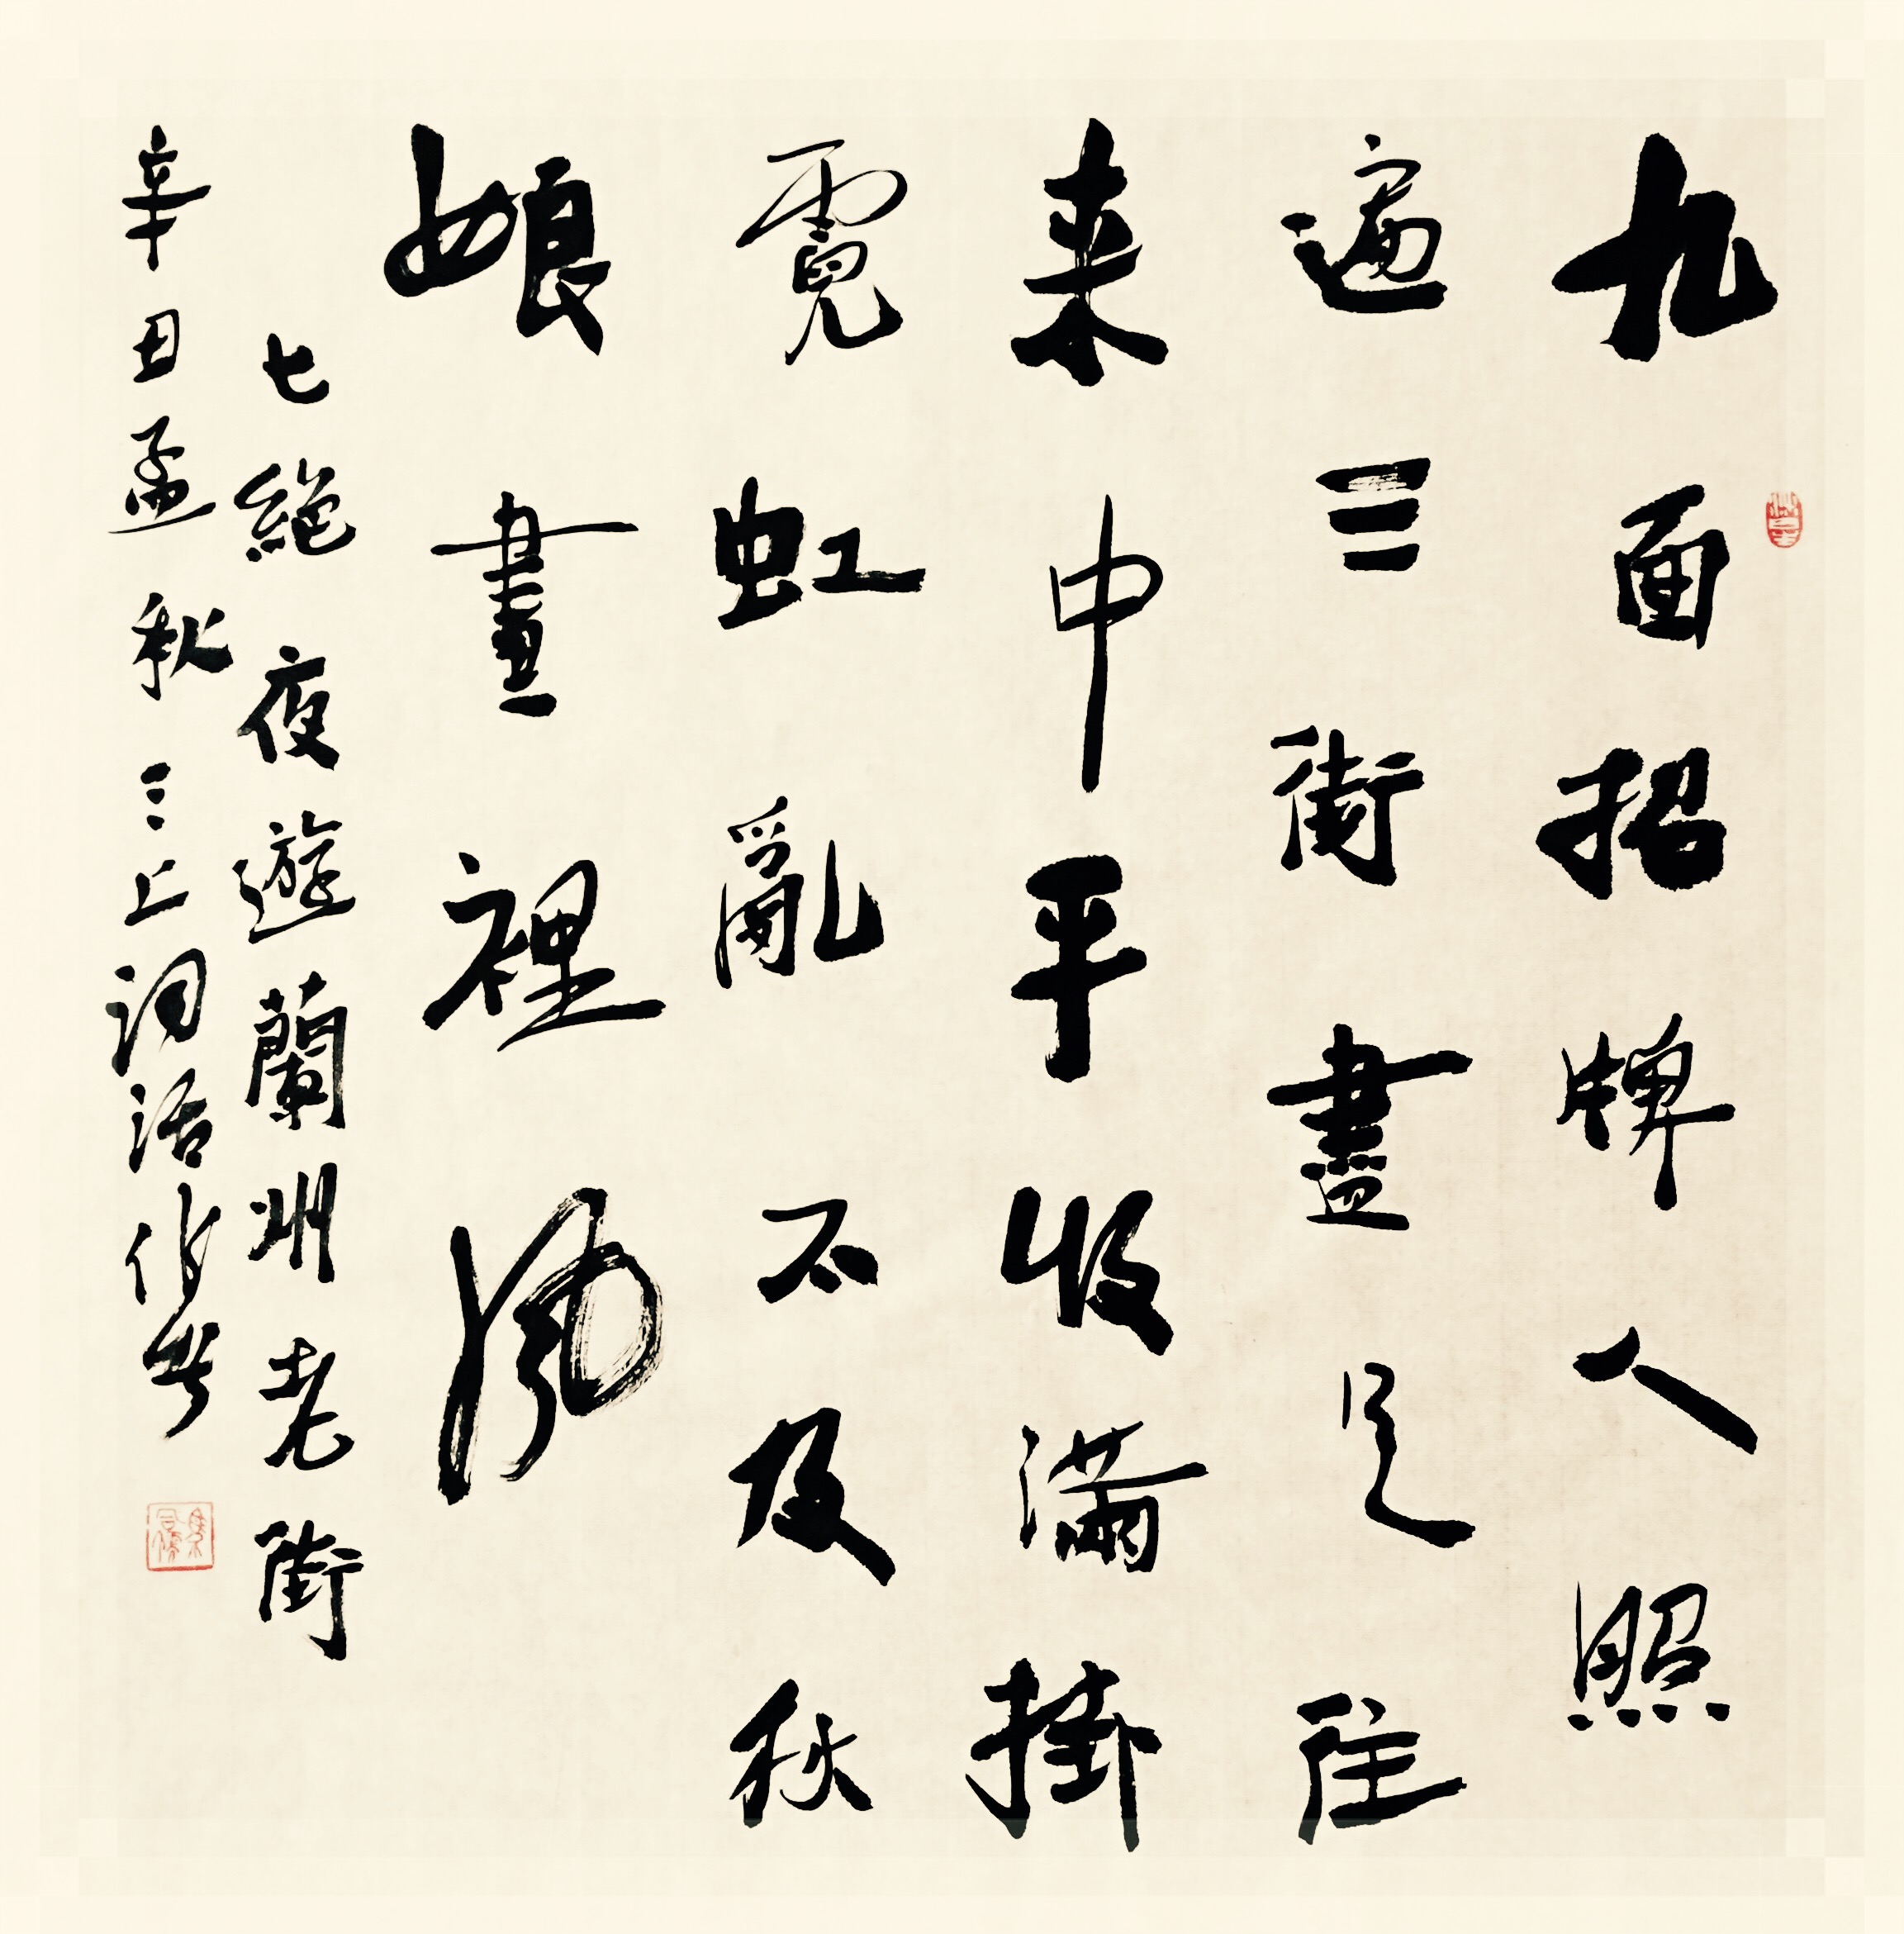 九面招牌人照
遍三街盡是往
来中平收滿掛
霓虹亂不及秋
娘畫裡風
七絕夜遊蘭州老街
辛丑孟秋三上